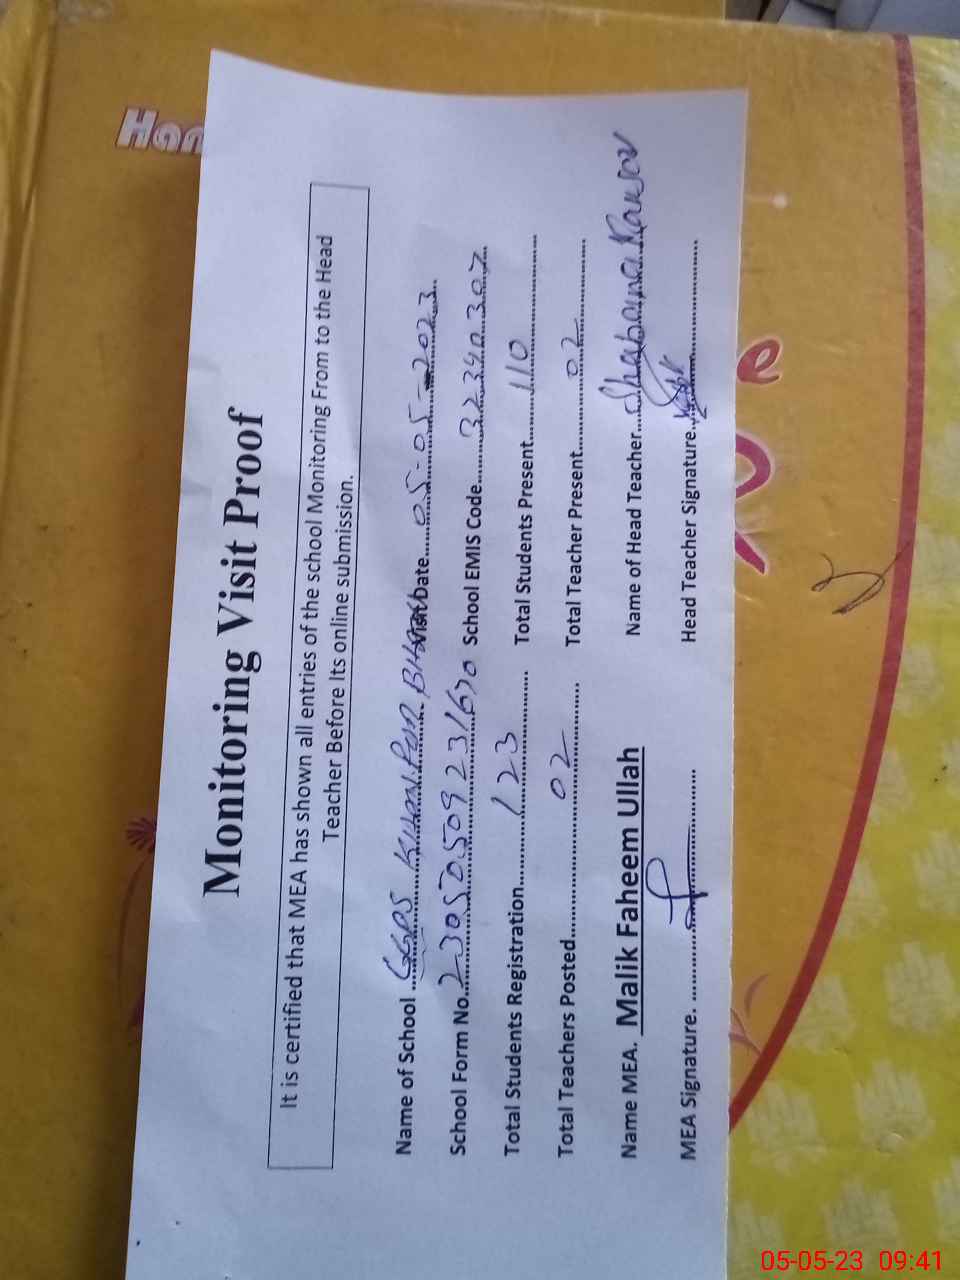 Han
Monitoring Visit Proof
It is certified that MEA has shown all entries of the school Monitoring From to the Head
Teacher Before Its online submission.
Name of School ......GGPS ............ Visit Date.....05-05-2023
School Form No.23050509231670 School EMIS Code......32340307
Total Students Registration......123...... Total Students Present......110......
Total Teachers Posted......02...... Total Teacher Present......02......
Name MEA. Malik Faheem Ullah Name of Head Teacher....Shabana Kausar
MEA Signature. ............ Head Teacher Signature.............
05-05-23 09:41